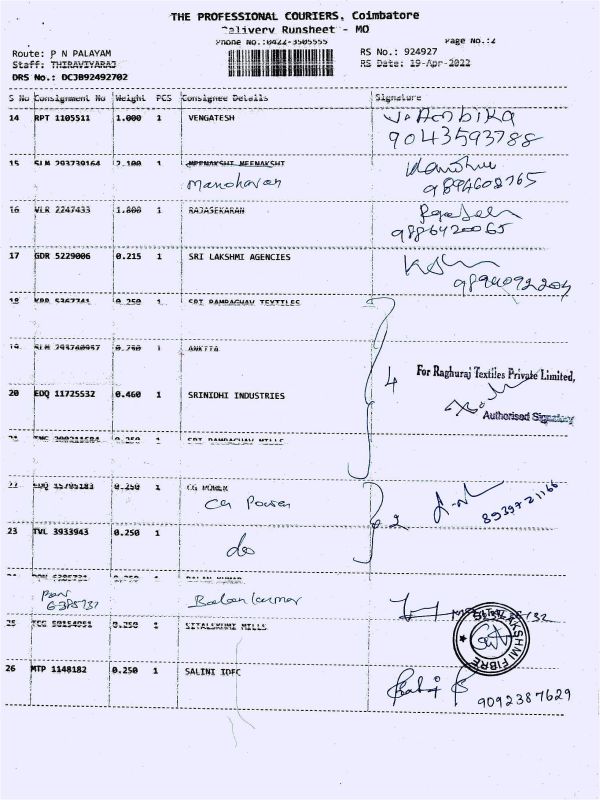 THE PROFESSIONAL COURIERS, Coimbatore
Delivery Runsheet - MO
Phone No.:0422-3505555 Page No.:2
Route: P N PALAYAM RS No.: 924927
Staff: THIRAVIYARAJ RS Date: 19-Apr-2022
DRS No.: DCJB92492702
S No Consignment No Weight PCS Consignee Details Signature
14 RPT 1105511 1.000 1 VENGATESH
9043593788
15 SLM 293739164 2.100 1 MEENAKSHI MEENAKSHI
Manoharan
9894608765
16 VLR 2247433 1.800 1 RAJASEKARAN
9886420065
17 GDR 5229006 0.215 1 SRI LAKSHMI AGENCIES
18 0.250 1 SRI RAMRAGHAV TEXTILES
19 1 ANKITA
4 For Raghuraj Textiles Private Limited,
20 EDQ 11725532 0.460 1 SRINIDHI INDUSTRIES
Authorised Signatory
21 0.250 1 SRI RAMRAGHAV MILLS
22 EDQ 0.250 1 CG POWER
CG Power
2
8939721166
23 TVL 3933943 0.250 1
do
BALAN KUMAR
Balan kumar
25 0.250 1 SITALKSHMI MILLS
LAKSHMI FIBRE
26 MTP 1148182 0.250 1 SALINI IDFC
9092387629